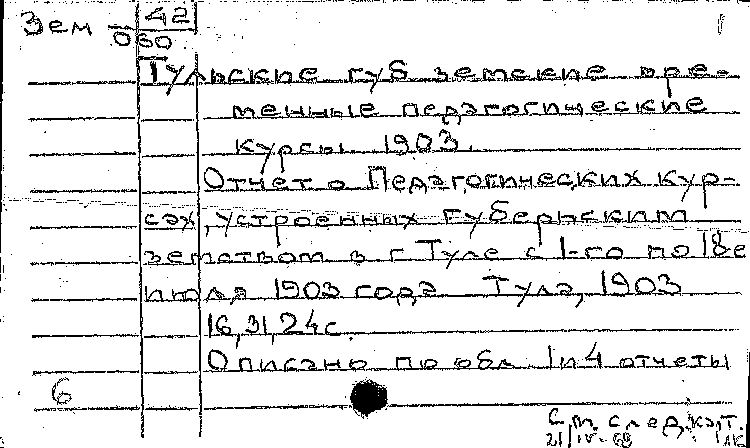 Зем 42
060
Тульские губ земские вре-
менные педагогические
курсы. 1903.
Отчет о Педагогических кур-
сах, устроенных губернским
земством в г Туле с 1-го по 18е
июля 1903 года Тула, 1903
16, 31, 24 с.
Описано по обл. 1 и 4 отчеты
6
См. след. к-т.